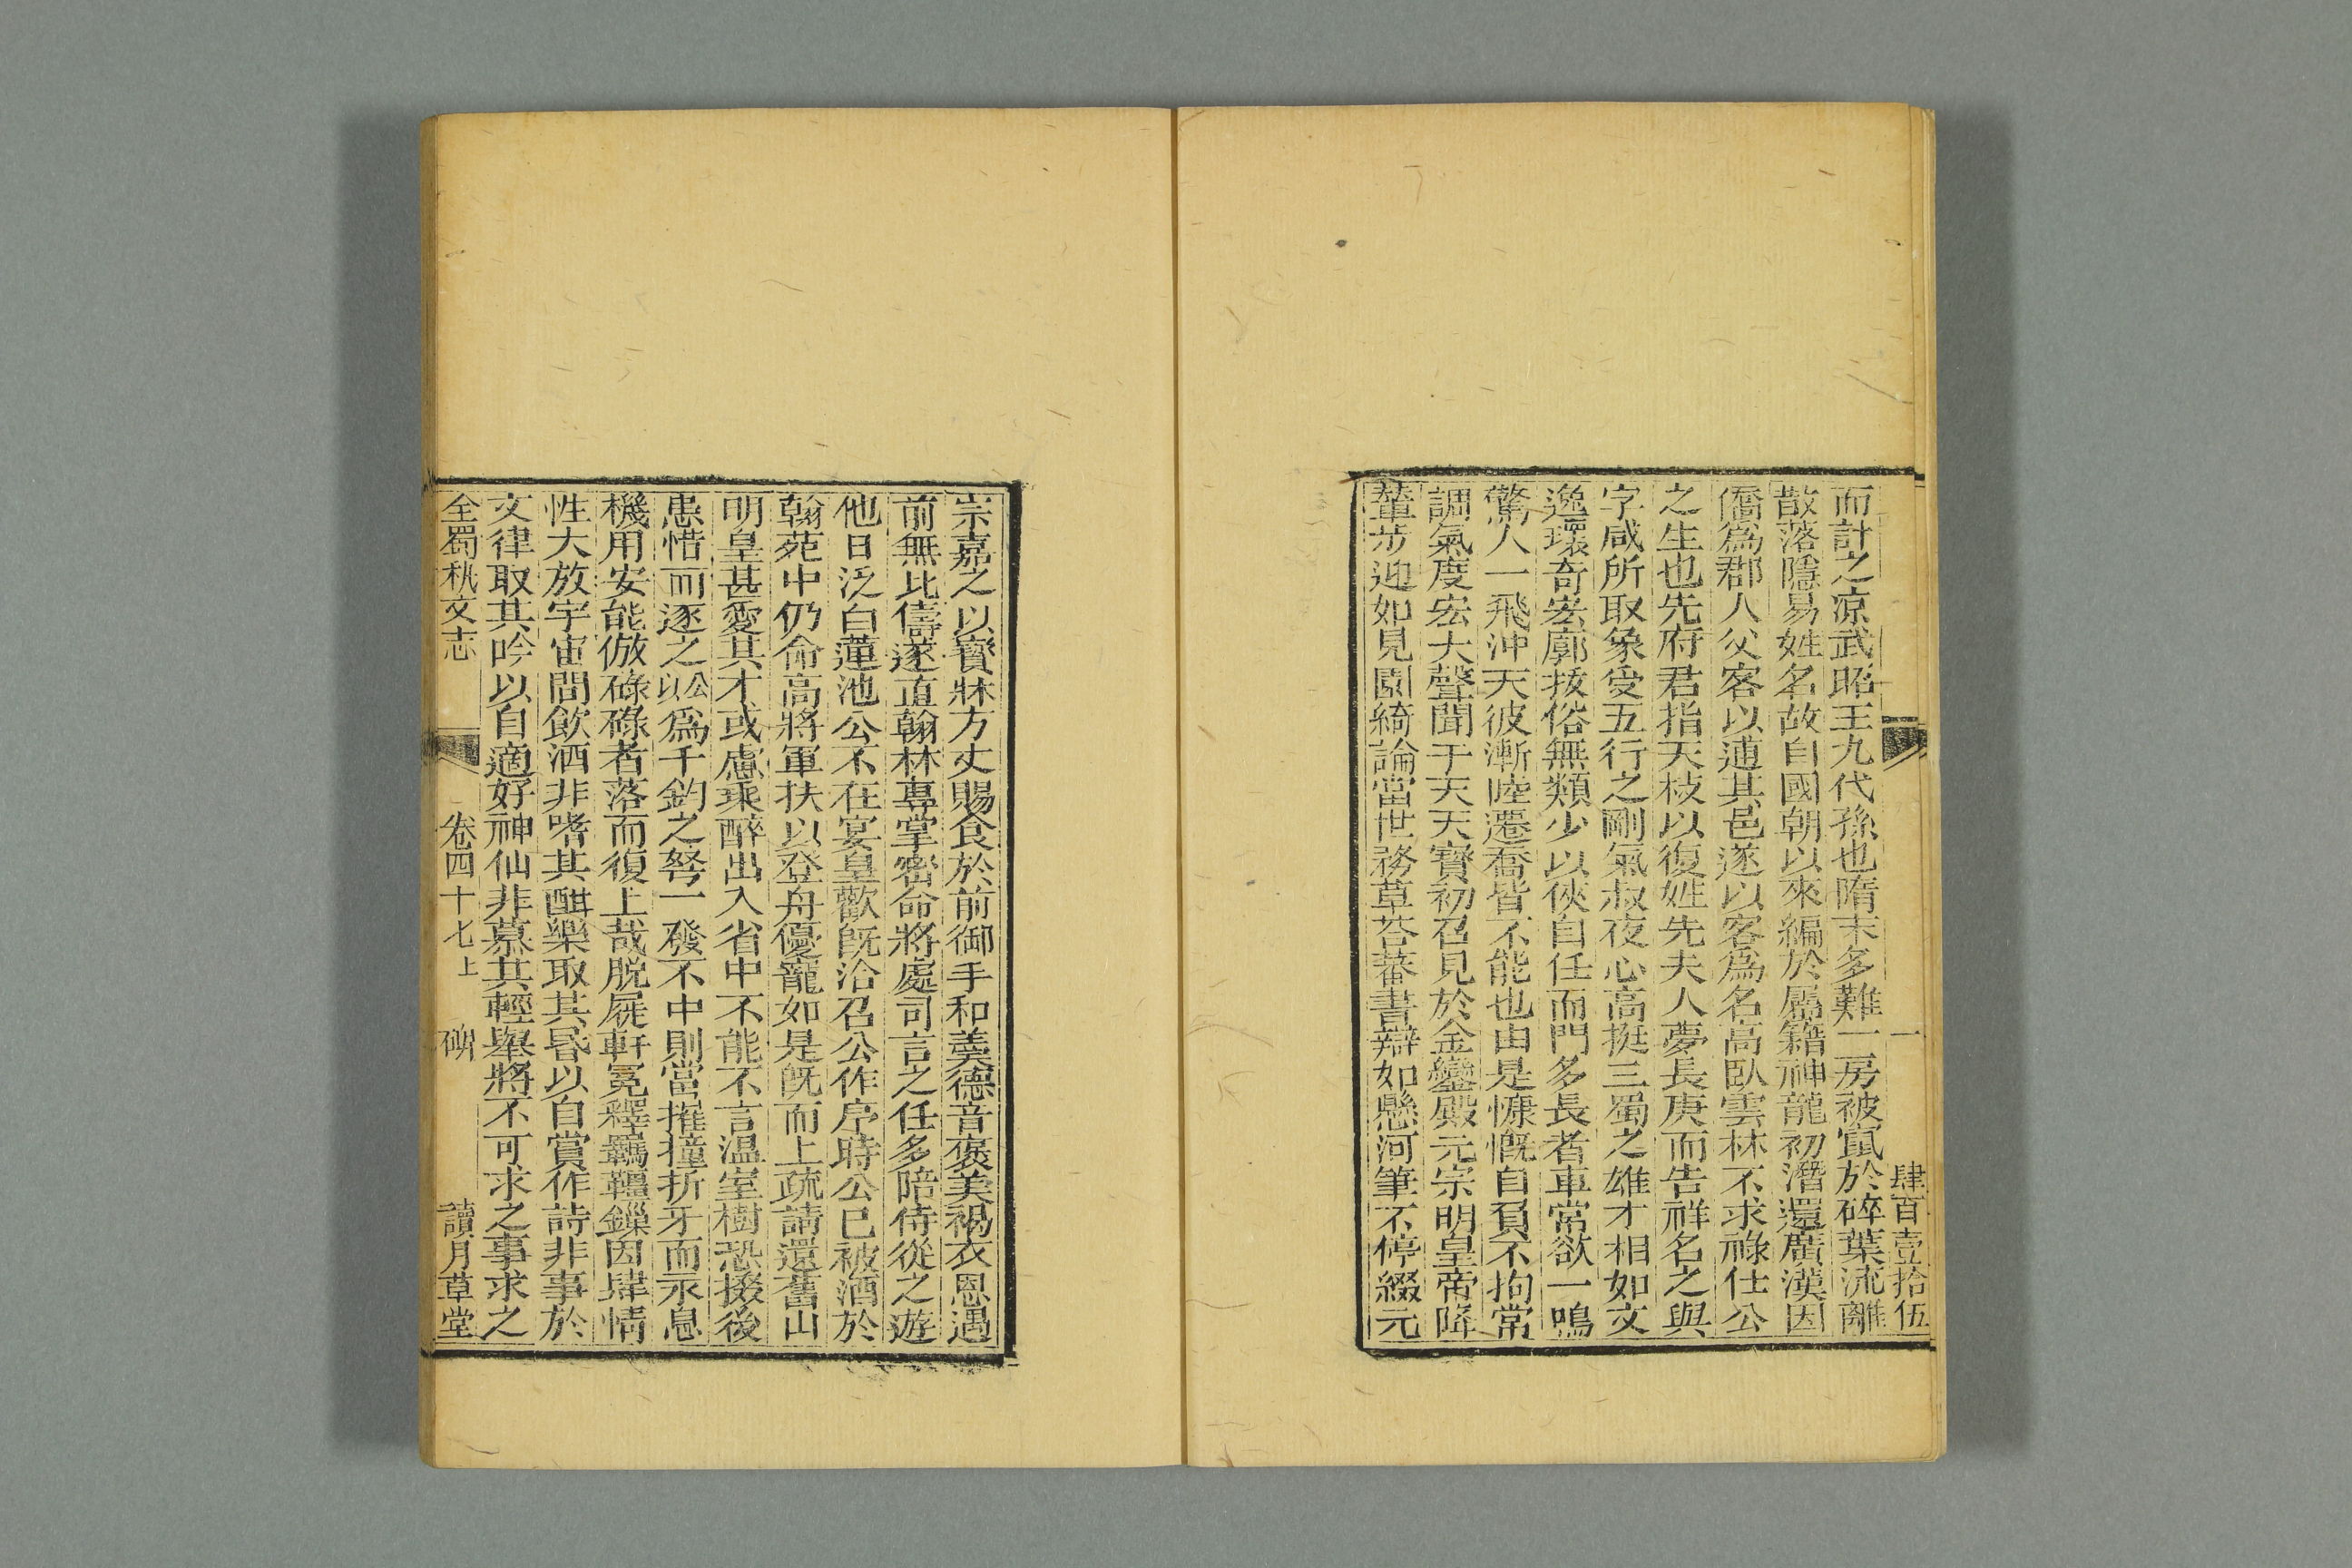 一　肆百壹拾伍
而計之凉武昭王九代孫也隋末多難一房被竄於碎葉流離
散落隱易姓名故自國朝以來編於屬籍神龍初潛還廣漢因
僑爲郡人父客以逋其邑遂以客爲名高臥雲林不求祿仕公
之生也先府君指天枝以復姓先夫人夢長庚而告祥名之與
字咸所取象受五行之剛氣叔夜心高挺三蜀之雄才相如文
逸瓌奇宏廓拔俗無類少以俠自任而門多長者車常欲一鳴
驚人一飛沖天彼漸陸遷喬皆不能也由是慷慨自負不拘常
調氣度宏大聲聞于天天寶初召見於金鑾殿元宗明皇帝降
輦步迎如見園綺論當世務草荅蕃書辯如懸河筆不停綴元
宗嘉之以寶牀方丈賜食於前御手和羹德音褒美褐衣恩遇
前無比儔遂直翰林專掌密命將處司言之任多陪侍從之遊
他日泛白蓮池公不在宴皇歡既洽召公作序時公已被酒於
翰苑中仍命高將軍扶以登舟優寵如是既而上疏請還舊山
明皇甚愛其才或慮乘醉出入省中不能不言温室樹恐掇後
患惜而逐之公以爲千鈞之弩一發不中則當摧撞折牙而永息
機用安能倣碌碌者落而復上哉脱屣軒冕釋羈韁鏁因肆情
性大放宇宙間飲酒非嗜其酣樂取其昏以自賞作詩非事於
文律取其吟以自適好神仙非慕其輕舉將不可求之事求之
全蜀秇文志　卷四十七上　碑　讀月草堂